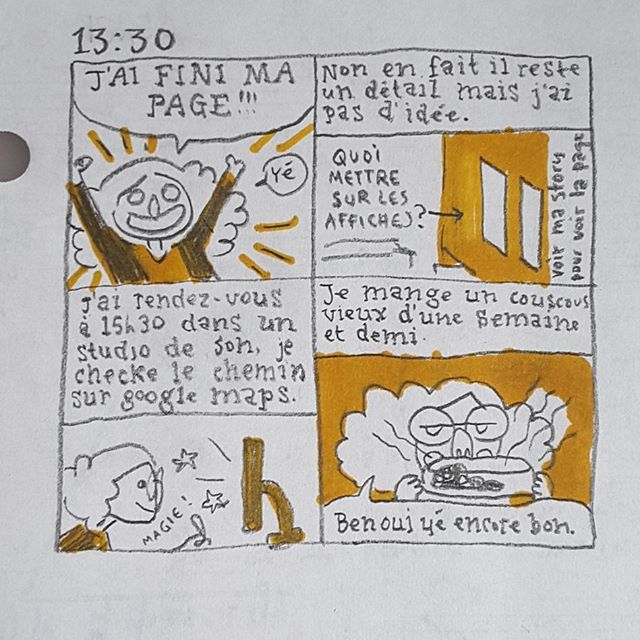 13:30
J'AI FINI MA
PAGE!!!
Yé
Non en fait il reste
un détail mais j'ai
pas d'idée.
QUOI
METTRE
SUR LES
AFFICHES?
voir ma story
pour voir la page
J'ai rendez-vous
à 15h30 dans un
studio de son, je
checke le chemin
sur google maps.
MAGIE!
Je mange un couscous
vieux d'une semaine
et demi.
Ben oui yé encore bon.